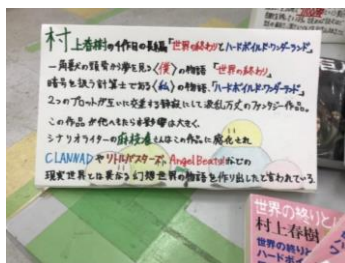 村上春樹の4作目の長編『世界の終わりとハードボイルド・ワンダーランド』
一角獣の頭骨から夢を見る〈僕〉の物語「世界の終わり」
暗号を扱う計算士である〈私〉の物語、「ハードボイルド・ワンダーランド」
2つのプロットが互いに交差する静寂にして波乱万丈のファンタジー作品。
この作品が他へもたらす影響は大きく、
シナリオライターの麻枝准さんはこの作品に感化され
CLANNADやリトルバスターズ、Angel Beats!などの
現実世界とは異なる幻想世界の物語を作り出したと言われている。
世界の終りと
村上春樹
世界の終り
ハードボイル